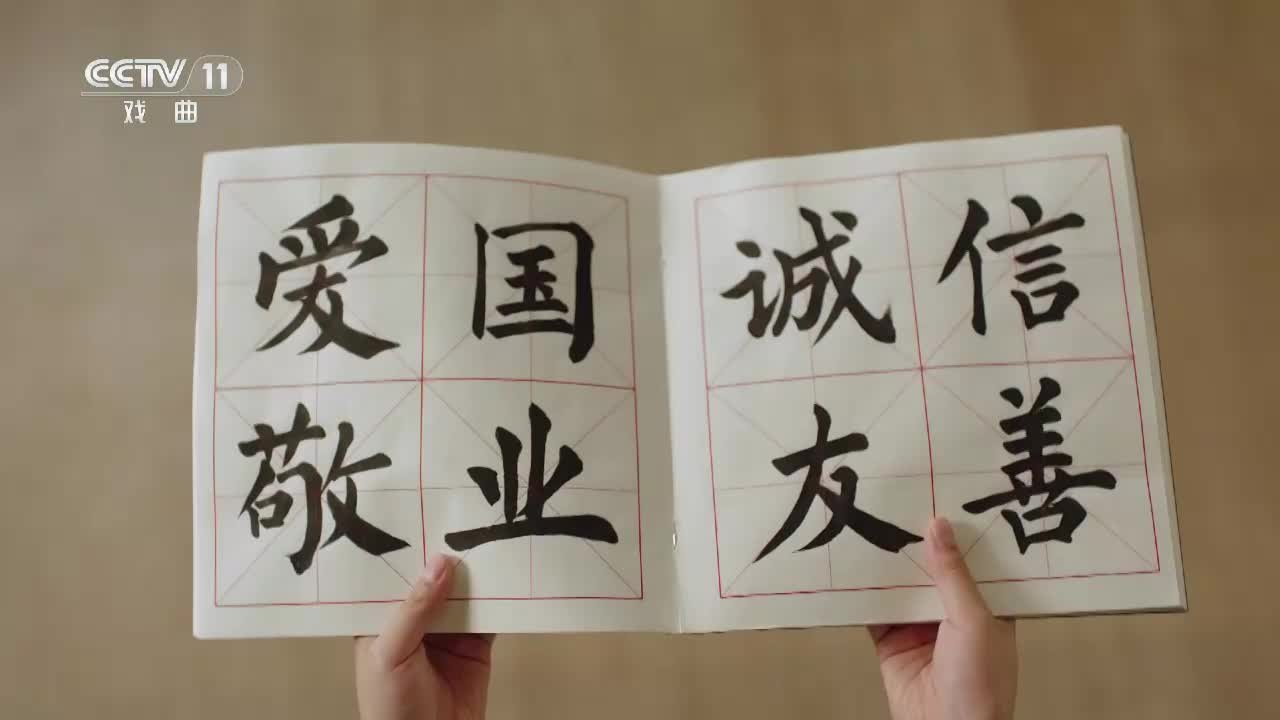 CCTV 11
戏曲
爱国
敬业
诚信
友善